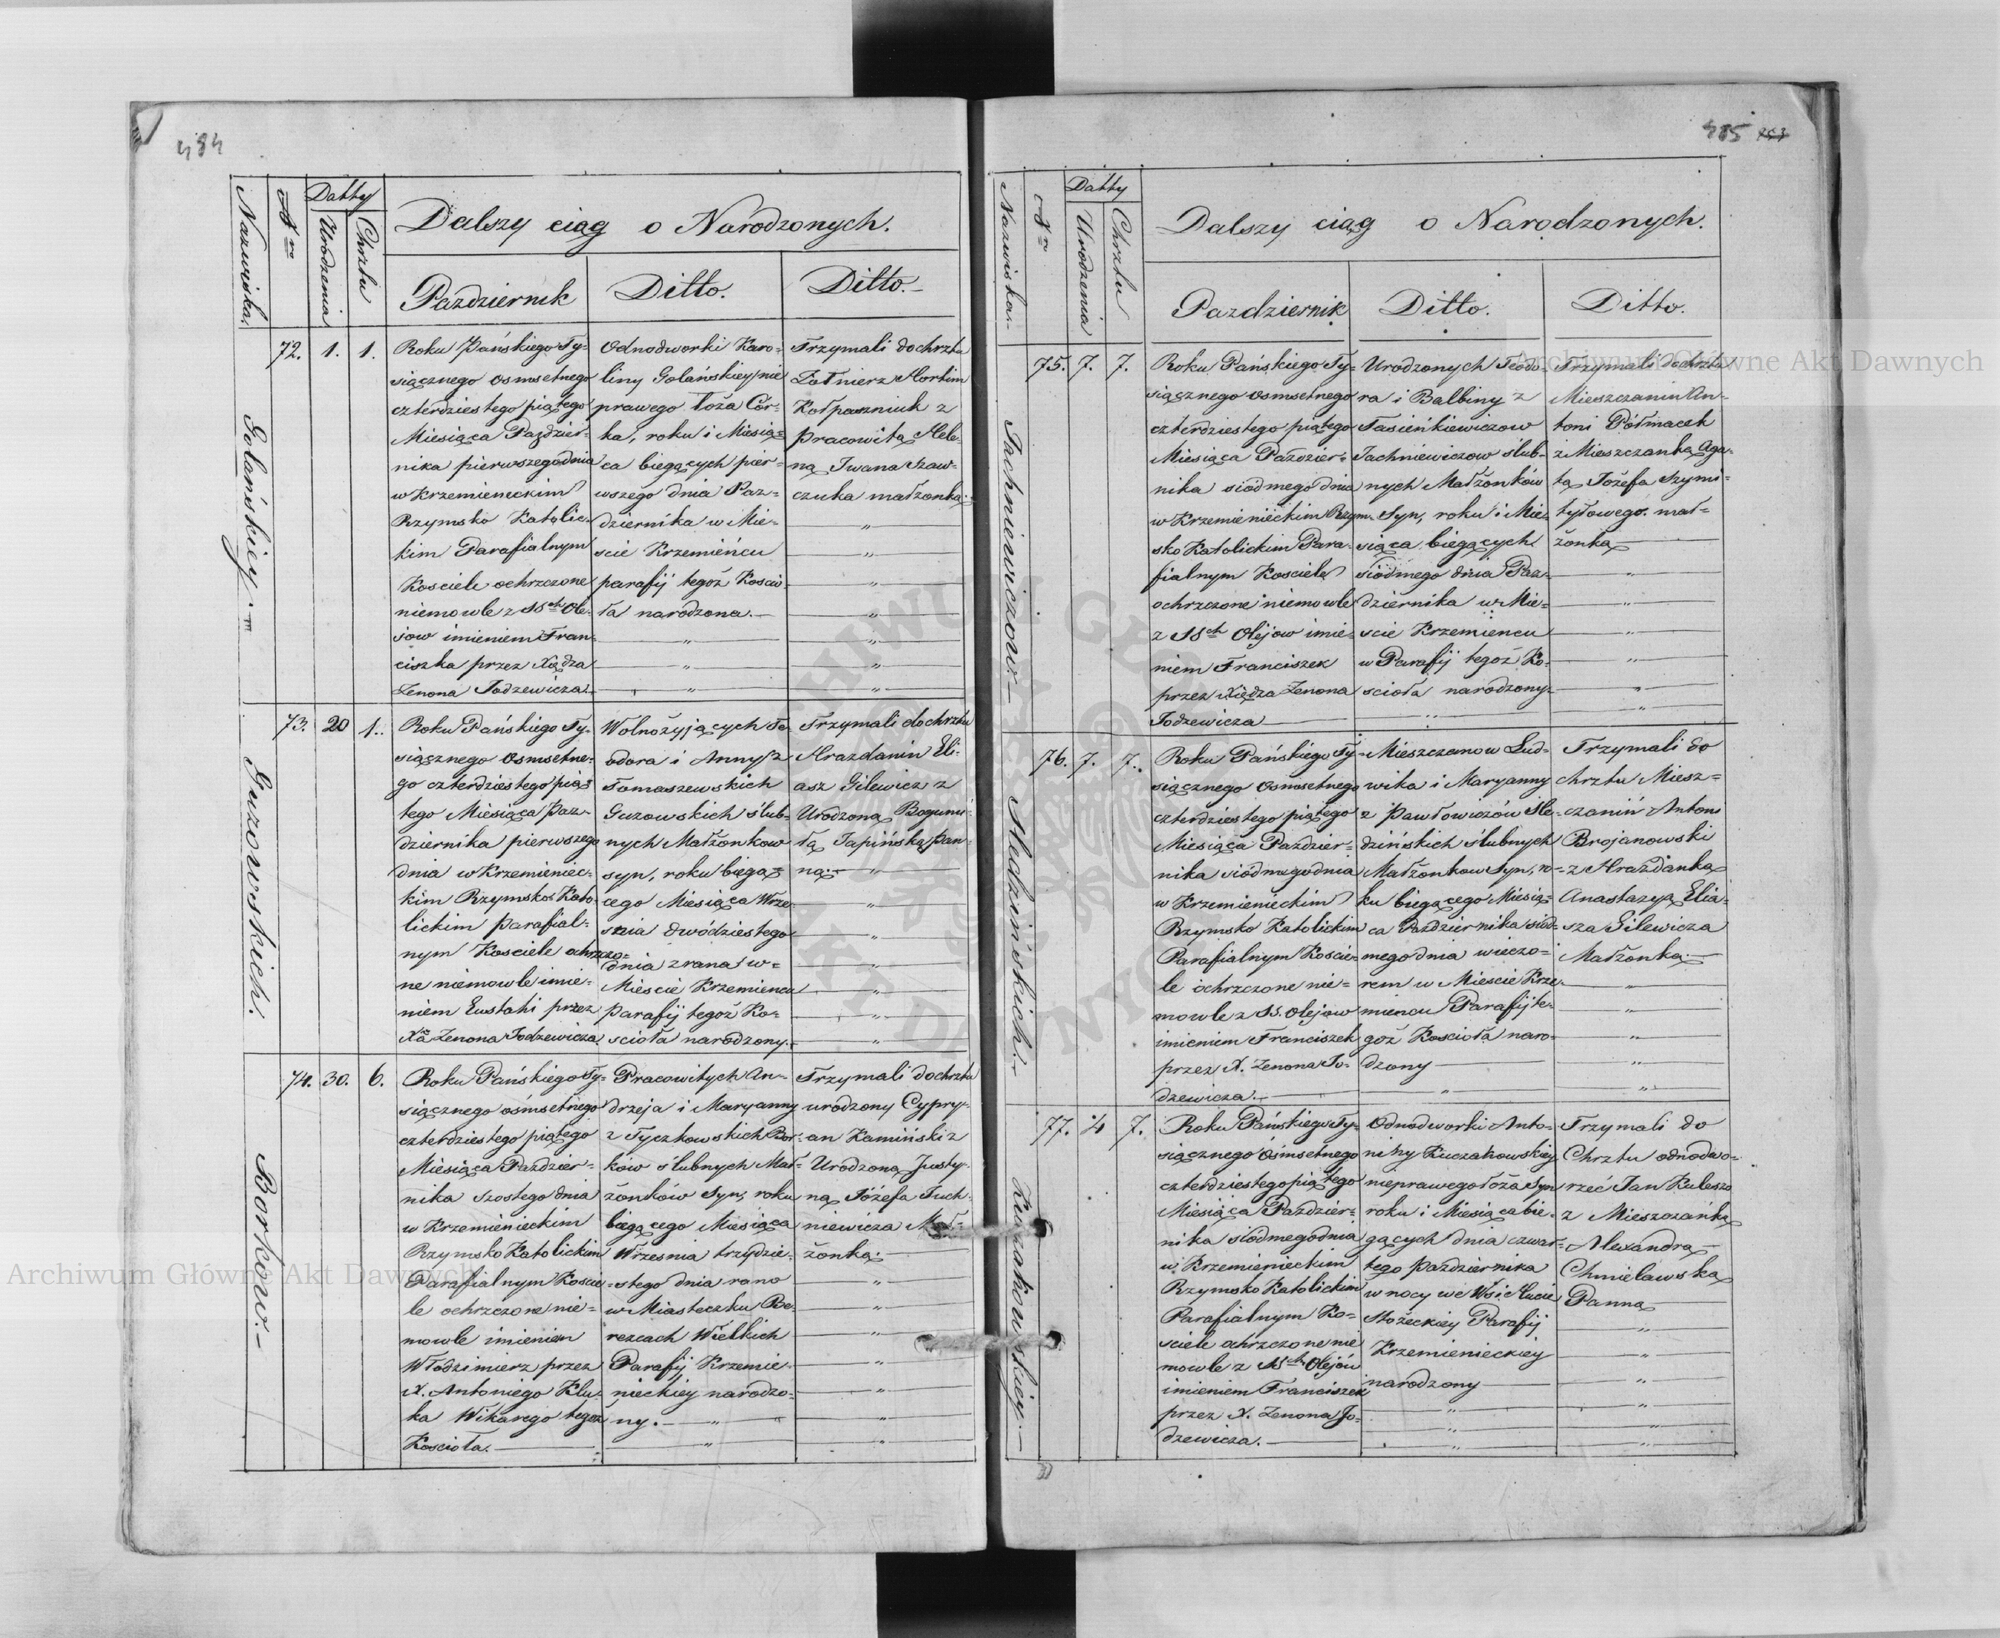 484
Nazwiska.
Nro
Datty
Urodzenia
Chrztu
Dalszy ciąg o Narodzonych.
Pazdziernik
Ditto.
Ditto.
Golańskiey.
72.
1.
1.
Roku Pańskiego Ty=
siącznego osmsetnego
czterdziestego piątego
Miesiąca Paździer=
nika pierwszego dnia
w Krzemienieckim
Rzymsko Katolic=
kim Parafialnym
Kosciele ochrzczone
niemowle z SSch Ole=
jow imieniem Fran=
ciszka przez Xiędza
Zenona Jodzewicza.
Odnodworki Karo=
liny Golańskiey nie
prawego łoża Cór=
ka, roku i Miesią=
ca biegących pier=
wszego dnia Paz=
dziernika w Mie=
scie Krzemieńcu
parafij tegoż Koscio=
ła narodzona.
Trzymali do chrztu
Żołnierz
z
pracowitą Hele=
ną Iwana Szaw=
czuka małżonką.
Guzowskich.
73.
20
1.
Roku Pańskiego Ty=
siącznego Osmsetne=
go czterdziestego pią=
tego Miesiąca Paz=
dziernika pierwszego
dnia w Krzemieniec=
kim Rzymsko Kato=
lickim parafial=
nym Kosciele ochrzczo=
ne niemowle imie=
niem Eustahi przez
Xa Zenona Jodzewicza
Wolnożyjących Te=
odora i Anny z
Tomaszewskich
Guzowskich ślub=
nych Małżonkow
syn, roku biegą=
cego Miesiąca Wrze=
snia dwódziestego
dnia z rana w=
Mieście Krzemiencu
parafij tegoż Ko=
scioła narodzony.
Trzymali do chrztu
Hrazdanin Eli=
asz Gilewicz z
Urodzoną Bogumi=
łą Japińską pan=
ną.
Borkow.
74.
30.
6.
Roku Pańskiego Ty=
siącznego ośmsetnego
czterdziestego piątego
Miesiąca Paździer=
nika szostego dnia
w Krzemienieckim
Rzymsko Katolickim
Parafialnym Koscie=
le ochrzczone nie=
mowle imieniem
Włodzimierz przez
X. Antoniego Klu=
ka Wikarego tegoż
Koscioła.
Pracowitych An=
drzeja i Maryanny
z Tyczkowskich Bor=
ków ślubnych Mał=
żonków Syn, roku
biegącego Miesiąca
Wrzesnia trzydzie=
stego dnia rano
w Miasteczku Be=
rezcach Wielkich
Parafij Krzemie=
nieckiey narodzo=
ny.
Trzymali do chrztu
urodzony Cypry=
an Kamiński z
Urodzoną Justy=
ną Józefa Juch=
niewicza Mał=
żonką.
485
Nazwiska.
Nro
Datty
Urodzenia
Chrztu
Dalszy ciąg o Narodzonych.
Pazdziernik
Ditto.
Ditto.
Jachniewiczow.
75.
7.
7.
Roku Pańskiego Ty=
siącznego osmsetnego
czterdziestego piątego
Miesiąca Paździer=
nika siódmego dnia
w Krzemienieckim Rzym=
sko Katolickim Para=
fialnym Kosciele
ochrzczone niemowle
z SSch Olejow imie=
niem Franciszek
przez Xiędza Zenona
Jodzewicza
Urodzonych Teodo=
ra i Balbiny z
Jasieńkiewiczow
Jachniewiczow ślub=
nych Małżonków
Syn, roku i Mie=
siąca biegących
siódmego dnia Paz=
dziernika w Mie=
scie Krzemiencu
w Parafij tegoż Ko=
scioła narodzony.
Trzymali do chrztu
Mieszczanin An=
toni Półmacek
z Mieszczanką Aga=
tą Józefa Szymi=
tyłowego mał=
żonką
Sledzińskich.
76.
7.
7.
Roku Pańskiego Ty=
siącznego Osmsetnego
czterdziestego piątego
Miesiąca Pazdzier=
nika siódmego dnia
w Krzemienieckim
Rzymsko Katolickim
Parafialnym Koscie=
le ochrzczone nie=
mowle z SS. Olejow
imieniem Franciszek
przez X. Zenona Jo=
dzewicza.
Mieszczanow Lud=
wika i Maryanny
z Pawłowiczów Sle=
dzińskich ślubnych
Małżonkow Syn, ro=
ku biegącego Miesią=
ca Pazdziernika siód=
mego dnia wieczo=
rem w Miescie Krze=
miencu Parafij te=
goż Koscioła naro=
dzony
Trzymali do
chrztu Miesz=
czanin Antoni
Brojanowski
z Hrażdanką
Anastazyą Elia=
sza Gilewicza
Małżonką.
Kuczakowskiey.
77.
4
7.
Roku Pańskiego Ty=
siącznego Ośmsetnego
czterdziestego piątego
Miesiąca Paździer=
nika siódmego dnia
w Krzemienieckim
Rzymsko Katolickim
Parafialnym Ko=
sciele ochrzczone nie
mowle z SSch Olejów
imieniem Franciszek
przez X. Zenona Jo=
dzewicza.
Odnodworki Anto=
niny Kuczakowskiey
nieprawego łoża Syn
roku i Miesiąca bie=
gących dnia czwar=
tego pazdziernika
w nocy we Wsi
Parafij
Krzemienieckiey
narodzony
Trzymali do
Chrztu odnodwo=
rzec Jan Kulesza
z Mieszczanką
Alexandrą
Chmielawską
Panną
Archiwum Główne Akt Dawnych
Archiwum Główne Akt Dawnych